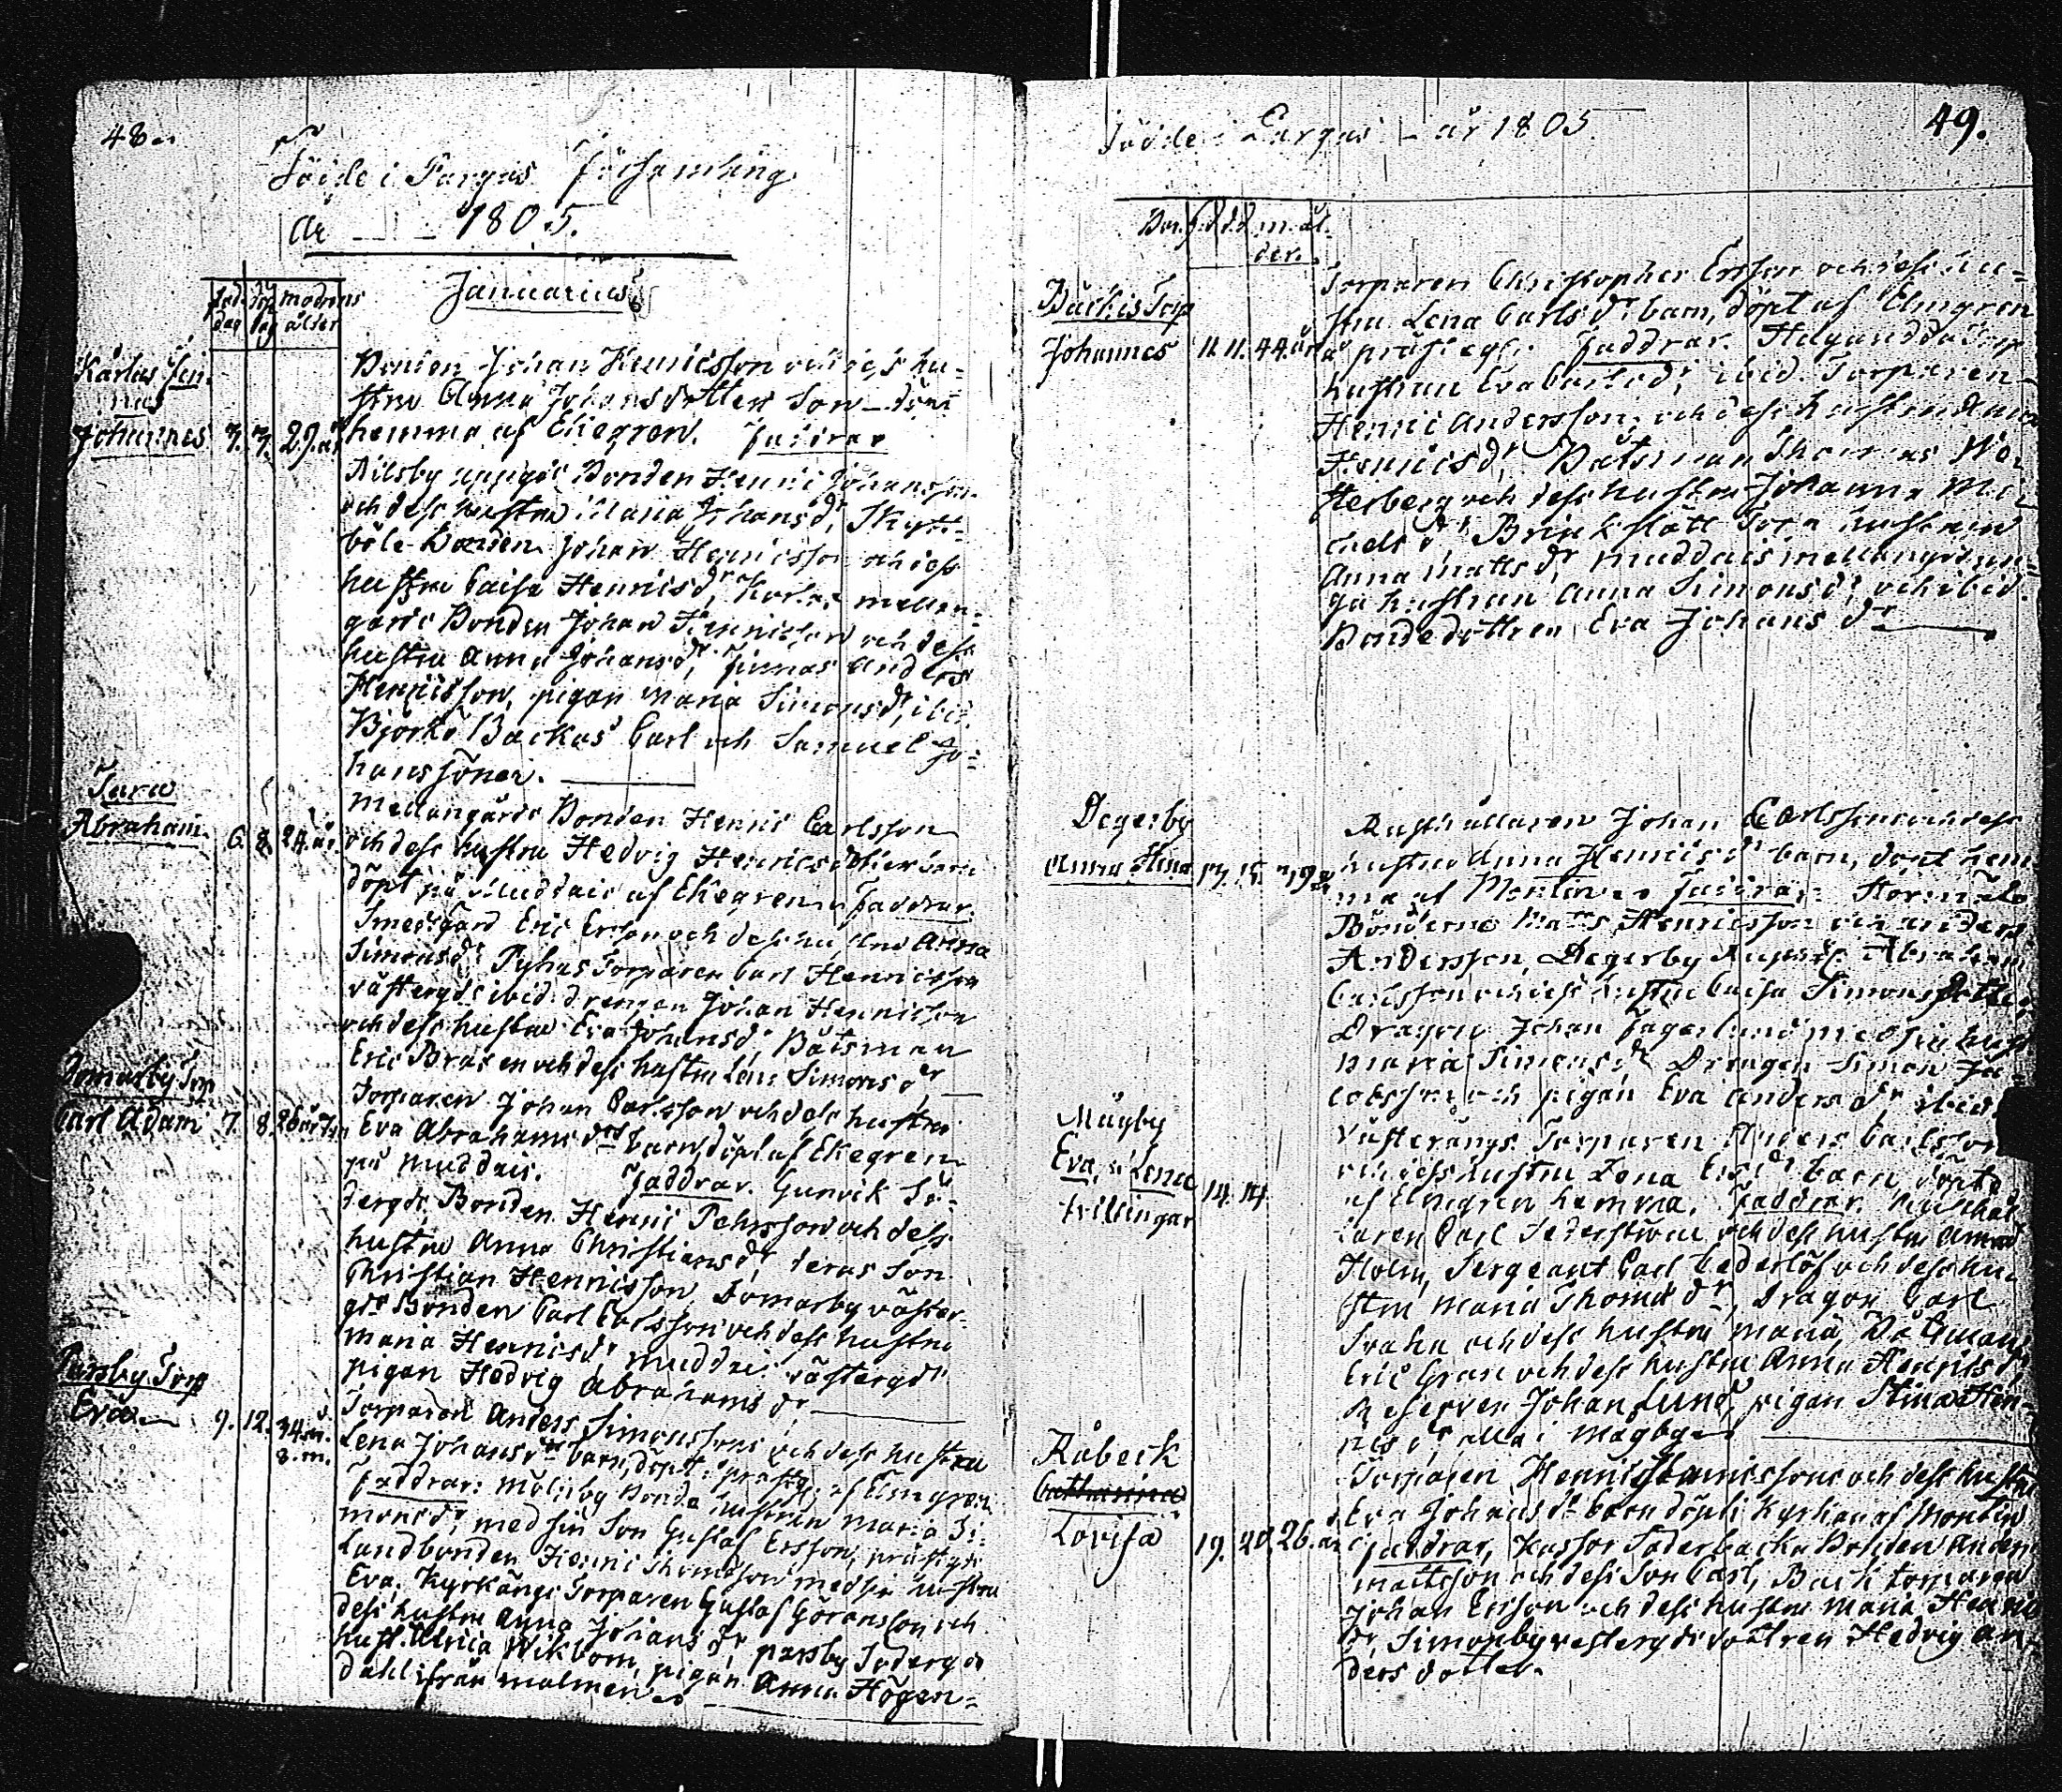 48.
Födde i Pargas Församling
År 1805.
Januarius
föd. dag döp dag modrens ålder
Karlas Jen
nas
Johannes 7. 7. 29. år
Bonden Johan Henricsson och dess hu-
stru Anna Johansdotters Son döpt
hemma af Ekegren. Faddrar
Bonden Henric Johansson
och dess hustru Maria Johansdr, Skytt-
böle Bonden Johan Henricsson och dess
hustru Caisa Henricsdr, mellan-
gårds Bonden Johan Henricsson och dess
hustru Anna Johansdr, Anders
Henricsson, pigan Maria Simonsdr, ibid.
Björkö Backas Carl och Samuel Jo-
hanssöner.
Abraham. 6. 8. 24. år
Mellangårds Bonden Henric Carlsson
och dess hustru Hedvig Henricsdotters barn
döpt på Muddais af Ekegren. Faddrar.
Smedsgård Eric Ersson och dess hustru Anna
Simonsdr Pyhas Torparen Carl Henricsson
västergds ibid. drengen Johan Henricsson
och dess hustru Eva Johansdr, Båtsman
Eric Brasen och dess hustru Lena Simonsdr
Torp
Carl Adam 7. 8. 26 år 7 m
Torparen Johan Carlsson och dess hustru
Eva Abrahamsdrs barn, döpt af Ekegren
på Muddais. Faddrar. Gunvik Sö-
dergds Bonden Henric Pehrsson och dess
hustru Anna Christiansdr, deras Son
Christian Henricsson, Domarby väster-
gds Bonden Carl Carlsson och dess hustru
Maria Henricsdr, Muddais västergds
pigan Hedvig Abrahamsdr
Parsby Torp
Eva 9. 12. 34 år. 8. m.
Torparen Anders Simonssons och dess hustru
Lena Johansdrs barn, döpt i prästg. af Elmgren
Faddrar: Mölnby Bonde hustrun Maria Si-
monsdr, med sin Son Gustaf Ersson, prästgds
Landbonden Henric Thomasson med sin hustru
Eva. Kyrkängs Torparen Gustaf Göransson och
dess hustru Anna Johansdr, Parsby Södergds
hust. Ulrica Wikbom, pigan Anna Högen-
dahl ifrån malmen.
49.
Födde i Pargas år 1805
Bar. f.d. d.d. m. ål-
der.
Backis Torp
Johannes 11. 11. 44. år
Torparen Christopher Ersson och dess hu-
stru Lena Carlsdr barn, döpt af Elmgren
i prästegl. Faddrar. Torp
hustrun Eva Carlsdr, ibid. Torparen
Henric Andersson, och dess hustru Anna
Henricsdr. Båtsman Thomas We-
sterberg och dess hustru Johanna Mi-
chelsdr. Brinkslätt Torp hustrun
Anna Mattsdr Muddais mellangds un-
ga hustrun Anna Simonsdr, och ibid.
Bondedottren Eva Johansdr
Degerby
Anna Stina 13. 15.
Rusthållaren Johan Carlssons och dess
hustru Anna Henricsdr barn, döpt hem-
ma af Montin. Faddrar: Stormälö
Bönderne Matts Henricsson och Anders
Andersson, Degerby Abraham
Carlsson och dess hustru Caisa Simonsdotter,
Dragon Johan Fagerlund med sin hust
Maria Simonsdr Drengen Simon Ja-
cobsson och pigan Eva Andersdr ibid.
Mågby
Eva, o Lena
tvillingar 14. 14.
Västerängs Torparen Anders Carlsson
och dess hustru Lena Ersdr barn döpte
af Elmgren hemma. Faddrar. Rusthål-
laren Carl Sederström och dess hustru Anna
Holm, Sergeant Carl Cederlöf och dess hu-
stru Maria Thomædr, Dragon Carl
Svahn och dess hustru Maria, Båtsman
Eric Gran och dess hustru Anna Henricsdr,
Reserven Johan Lund, pigan Stina Hen-
ricsdr alla i Mågby
Råbeck
Catharina
Lovisa 19. 20. 26. år
Torparen Henric Hanrissons och dess hustru
Eva Johansdr barn döpt i Kyrkan af Montin
Faddrar, Kassor Söderbacka Bonden Anders
Mattsson och dess Son Carl, Back torparen
Johan Ersson och dess hustru Maria Henrics
dr, Simonby vestergds dottren Hedvig An-
ders dotter.